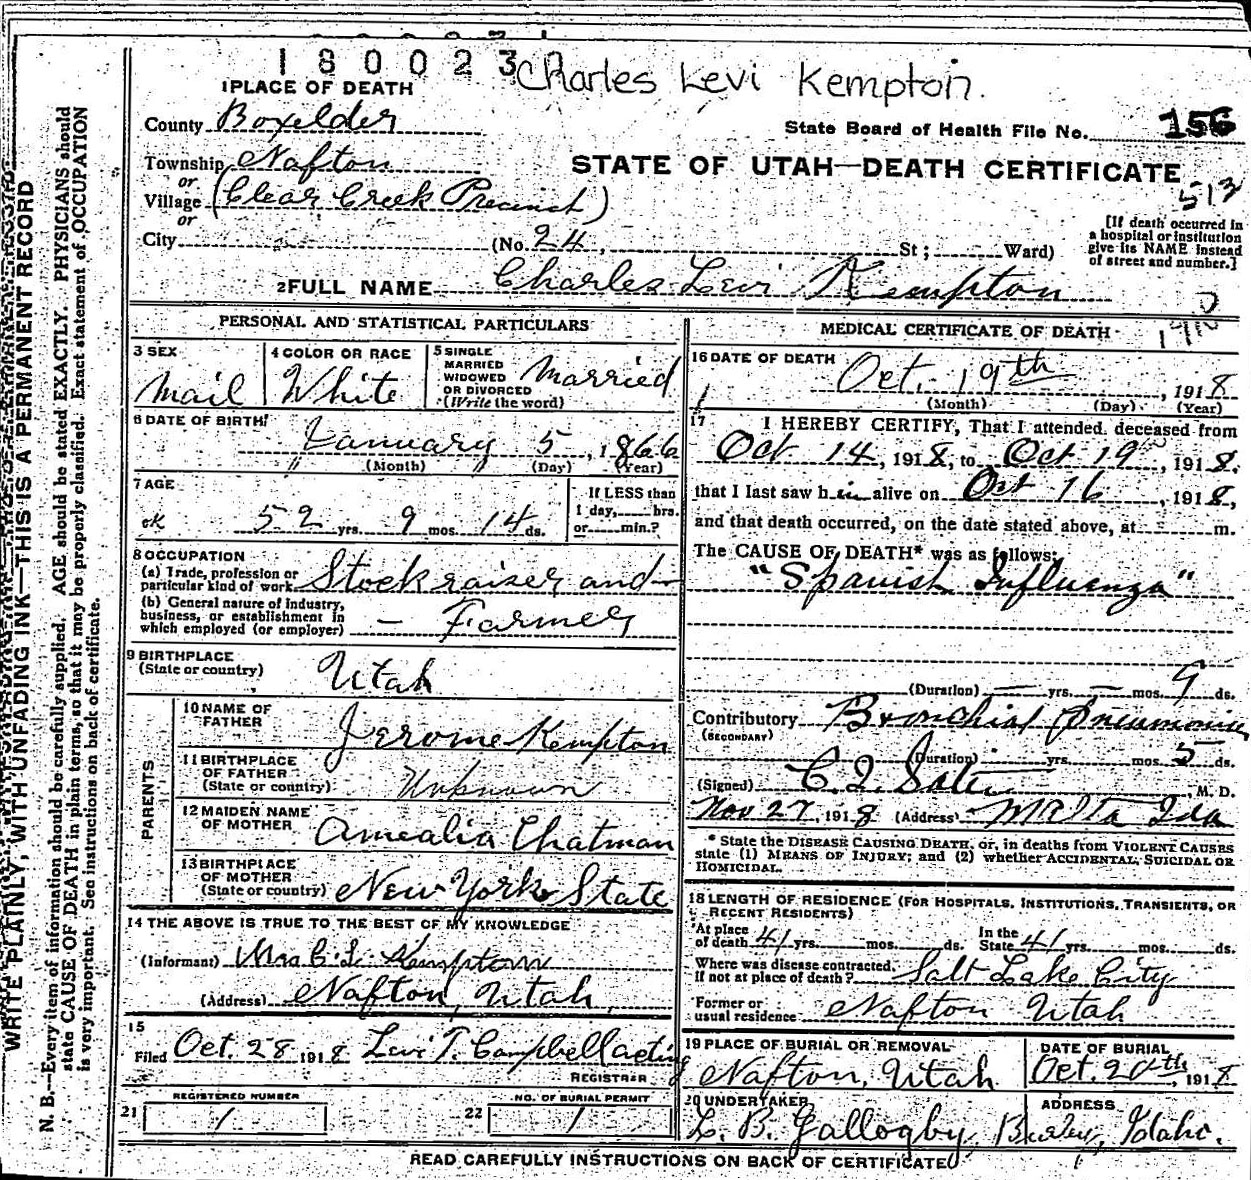 180023 Charles Levi Kempton.
1 PLACE OF DEATH
County Boxelder
State Board of Health File No. 156
Township Nafton
STATE OF UTAH—DEATH CERTIFICATE
or
Village (Clear Creek Precinct)
513
or
City (No. 24, St; Ward)
[If death occurred in
a hospital or institution
give its NAME instead
of street and number.]
2 FULL NAME Charles Levi Kempton
PERSONAL AND STATISTICAL PARTICULARS
3 SEX
Mail
4 COLOR OR RACE
White
5 SINGLE
MARRIED
WIDOWED
OR DIVORCED
(Write the word)
Married
6 DATE OF BIRTH
January 5, 1866
(Month) (Day) (Year)
7 AGE
ok 52 yrs. 9 mos. 14 ds.
If LESS than
1 day, hrs.
or min.?
8 OCCUPATION
(a) Trade, profession or
particular kind of work Stockraiser and
(b) General nature of industry,
business, or establishment in
which employed (or employer) — Farmer
9 BIRTHPLACE
(State or country) Utah
PARENTS
10 NAME OF
FATHER Jerome Kempton
11 BIRTHPLACE
OF FATHER
(State or country) Unknown
12 MAIDEN NAME
OF MOTHER Amealia Chatman
13 BIRTHPLACE
OF MOTHER
(State or country) New York State
14 THE ABOVE IS TRUE TO THE BEST OF MY KNOWLEDGE
(Informant) Mrs C. L. Kempton
(Address) Nafton, Utah
15
Filed Oct. 28 1918 Levi T. Campbell acting
REGISTRAR
21 REGISTERED NUMBER
1
22 NO. OF BURIAL PERMIT
1
MEDICAL CERTIFICATE OF DEATH
16 DATE OF DEATH
Oct. 19th, 1918
(Month) (Day) (Year)
17 I HEREBY CERTIFY, That I attended deceased from
Oct 14, 1918, to Oct 19, 1918.
that I last saw him alive on Oct 16, 1918,
and that death occurred, on the date stated above, at m.
The CAUSE OF DEATH* was as follows:
"Spanish Influenza"
(Duration) — yrs. — mos. 9 ds.
Contributory Bronchial Pneumonia
(SECONDARY)
(Duration) yrs. mos. 5 ds.
(Signed) M. D.
Nov 27, 1918 (Address) Malta Ida
* State the DISEASE CAUSING DEATH, or, in deaths from VIOLENT CAUSES
state (1) MEANS OF INJURY; and (2) whether ACCIDENTAL, SUICIDAL OR
HOMICIDAL.
18 LENGTH OF RESIDENCE (FOR HOSPITALS, INSTITUTIONS, TRANSIENTS, OR
RECENT RESIDENTS)
At place
of death 41 yrs. mos. ds.
In the
State 41 yrs. mos. ds.
Where was disease contracted,
If not at place of death? Salt Lake City
Former or
usual residence Nafton Utah
19 PLACE OF BURIAL OR REMOVAL
Nafton, Utah
DATE OF BURIAL
Oct. 20th, 1918
20 UNDERTAKER
L. B. Gallogby
ADDRESS
Burley, Idaho.
READ CAREFULLY INSTRUCTIONS ON BACK OF CERTIFICATE
WRITE PLAINLY, WITH UNFADING INK—THIS IS A PERMANENT RECORD
N. B.—Every item of information should be carefully supplied. AGE should be stated EXACTLY. PHYSICIANS should
state CAUSE OF DEATH in plain terms, so that it may be properly classified. Exact statement of OCCUPATION
is very important. See instructions on back of certificate.